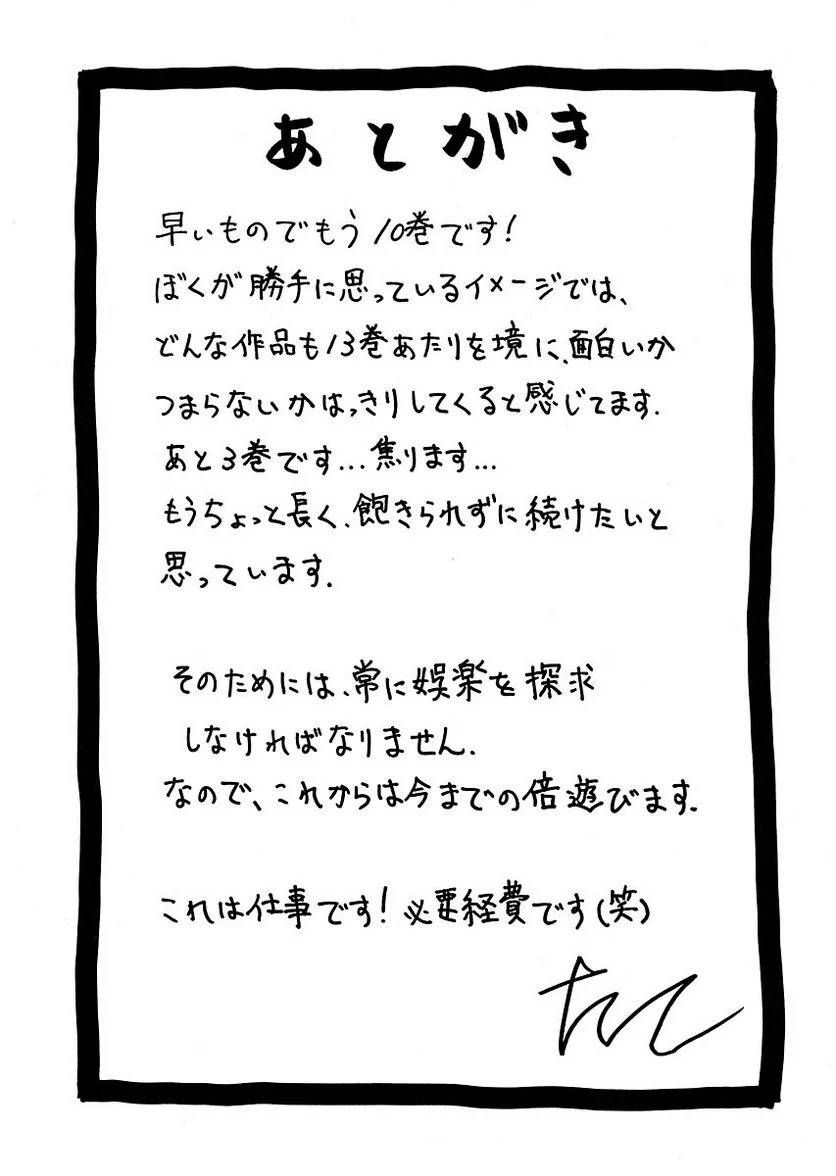 あとがき
早いものでもう10巻です!
ぼくが勝手に思っているイメージでは、
どんな作品も13巻あたりを境に、面白いか
つまらないかはっきりしてくると感じてます.
あと3巻です...焦ります...
もうちょっと長く、飽きられずに続けたいと
思っています.
そのためには、常に娯楽を探求
しなければなりません.
なので、これからは今までの倍遊びます.
これは仕事です!必要経費です(笑)